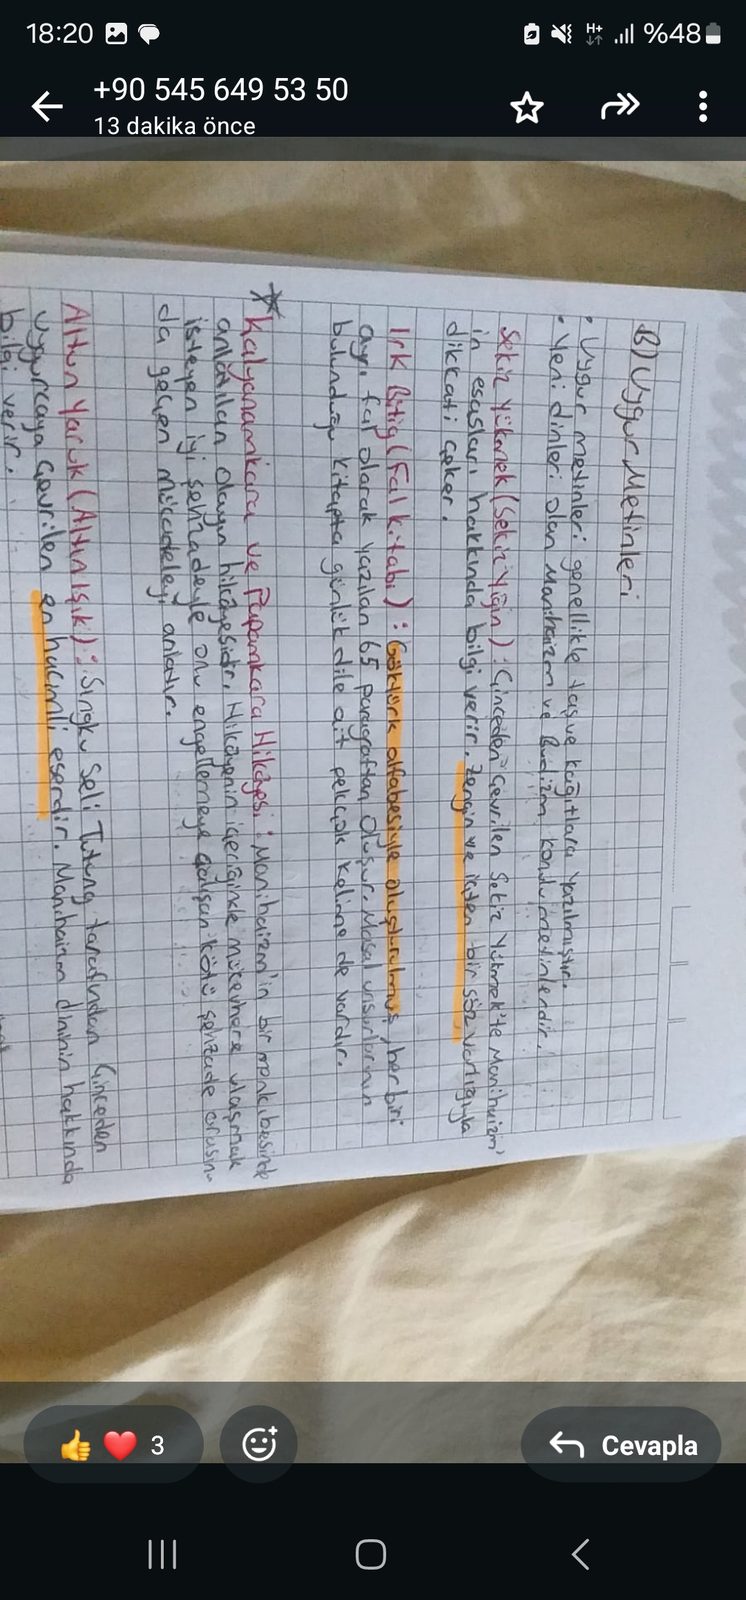 18:20
H+
%48
+90 545 649 53 50
13 dakika önce
B) Uygur Metinleri
• Uygur metinleri genellikle taş ve kağıtlara yazılmıştır.
• Yeni dinleri olan Manihaizm ve Budizm konulu metinlerdir.
Sekiz Yükmek (Sekiz Yığın) : Çinceden çevrilen Sekiz Yükmek'te Manihaizm'
in esasları hakkında bilgi verir. Zengin ve içten bir söz varlığıyla
dikkati çeker.
Irk Bitig (Fal kitabı) : Göktürk alfabesiyle oluşturulmuş, her biri
ayrı fal olarak yazılan 65 paragraftan oluşur. Masal unsurlarının
bulunduğu kitapta günlük dile ait pekçok kelime de vardır.
Kalyanamkara ve Papamkara Hikâyesi : Manihaizm'in bir menkıbesinde
anlatılan olayın hikâyesidir. Hikâyenin içeriğinde mücevhere ulaşmak
isteyen iyi şehzadeyle onu engellemeye çalışan kötü şehzade arasın-
da geçen mücadeleyi anlatır.
Altun Yaruk (Altın Işık) : Singku Seli Tutung tarafından Çinceden
Uygurcaya çevrilen en hacimli eserdir. Manihaizm dininin hakkında
bilgi verir.
3
Cevapla